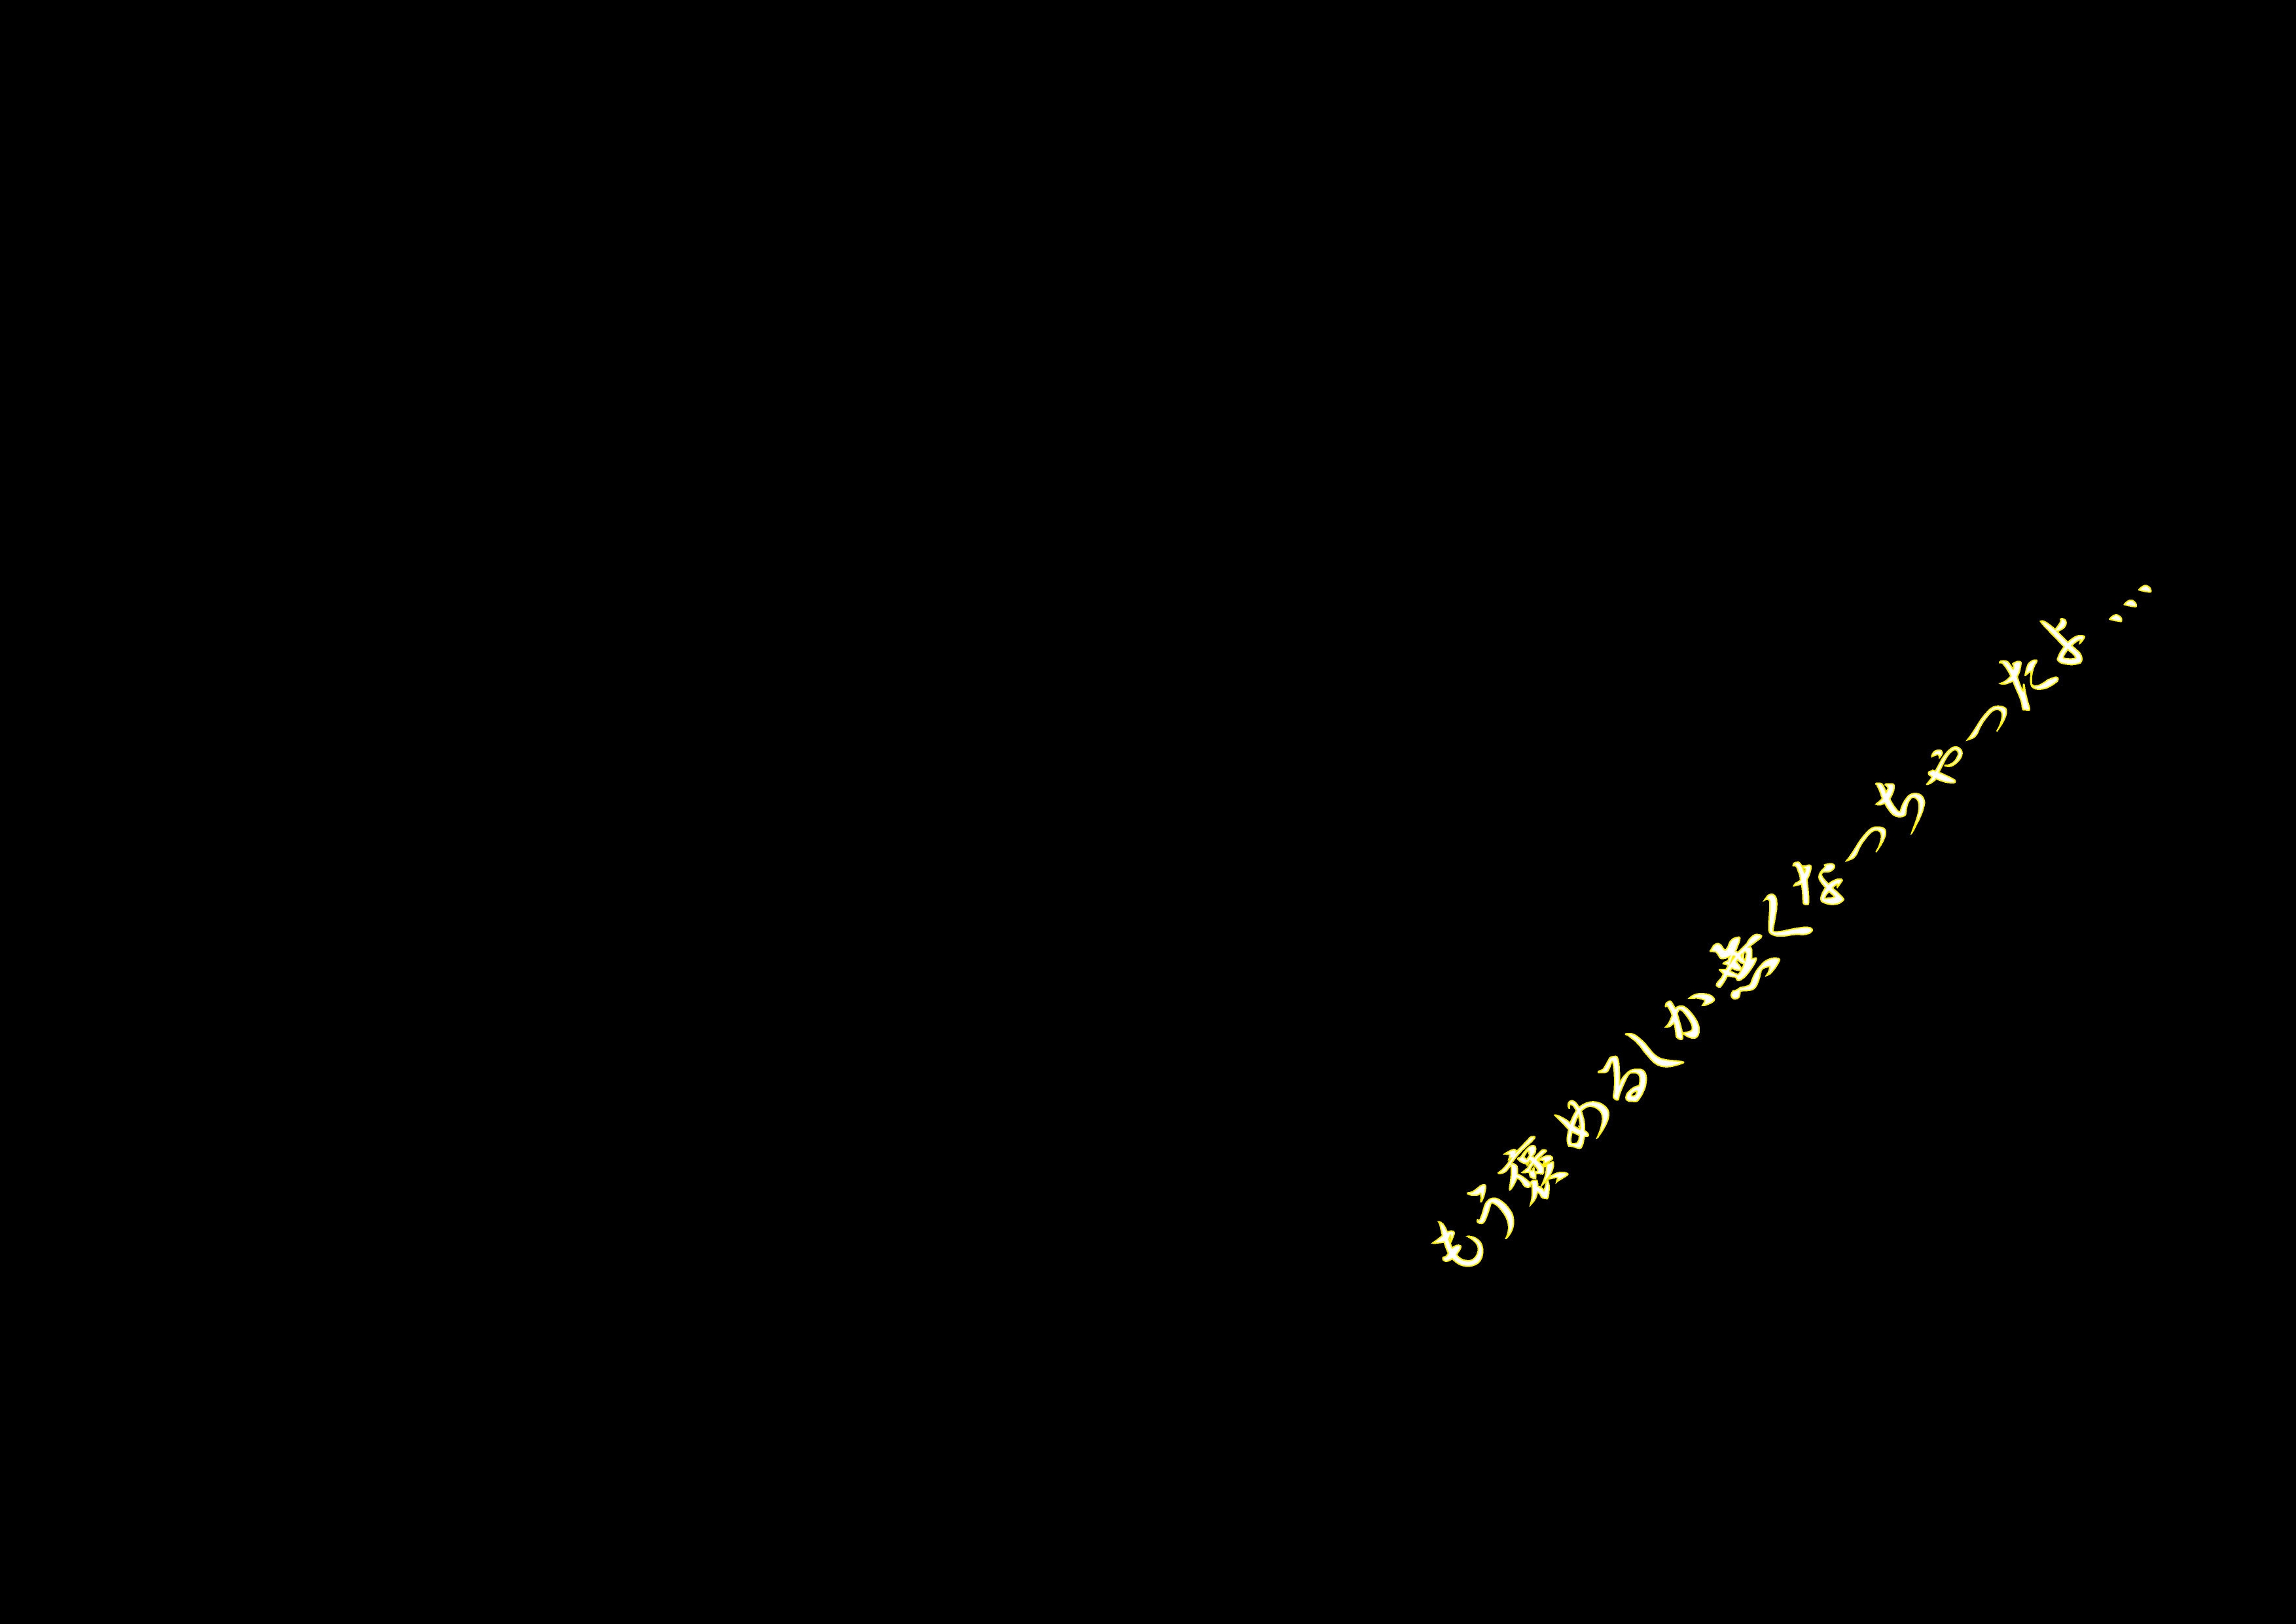 もう褒めるしか無くなっちゃったよ…